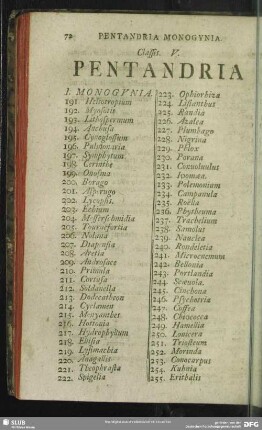 72 PENTANDRIA MONOGYNIA.
Classis. V.
PENTANDRIA
I. MONOGYNIA.
191. Heliotropium
192. Myosotis
193. Lithospermum
194. Anchusa
195. Cynoglossum
196. Pulmonaria
197. Symphytum
198. Cerinthe
199. Onosma
200. Borago
201. Asperugo
202. Lycopsis
203. Echium
204. Messerschmidia
205. Tournefortia
206. Nolana
207. Diapensia
208. Aretia
209. Androsace
210. Primula
211. Cortusa
212. Soldanella
213. Dodecatheon
214. Cyclamen
215. Menyanthes
216. Hottonia
217. Hydrophyllum
218. Ellisia
219. Lysimachia
220. Anagallis
221. Theophrasta
222. Spigelia
223. Ophiorhiza
224. Lisianthus
225. Randia
226. Azalea
227. Plumbago
228. Nigrina
229. Phlox
230. Porana
231. Convolvulus
232. Ipomaea
233. Polemonium
234. Campanula
235. Roëlla
236. Phyteuma
237. Trachelium
238. Samolus
239. Nauclea
240. Rondeletia
241. Macrocnemum
242. Bellonia
243. Portlandia
244. Scaevola
245. Cinchona
246. Psychotria
247. Coffea
248. Chiococca
249. Hamellia
250. Lonicera
251. Triosteum
252. Morinda
253. Conocarpus
254. Kuhnia
255. Erithalis
SLUB
DFG